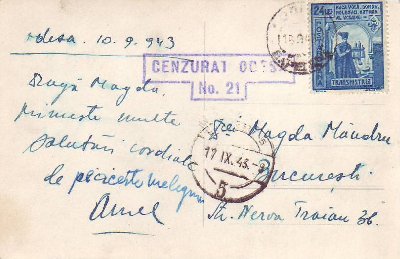 Odesa, 10.9.943
CENZURAT ODESA
No. 21
24 LEI
TRANSNISTRIA
Dragă Magda,
primește multe
salutări cordiale
de pe aceste meleguri
Amel
17 IX. 43.
5
D-rei Magda Mândru
București
Str. Nerva Traian 36.